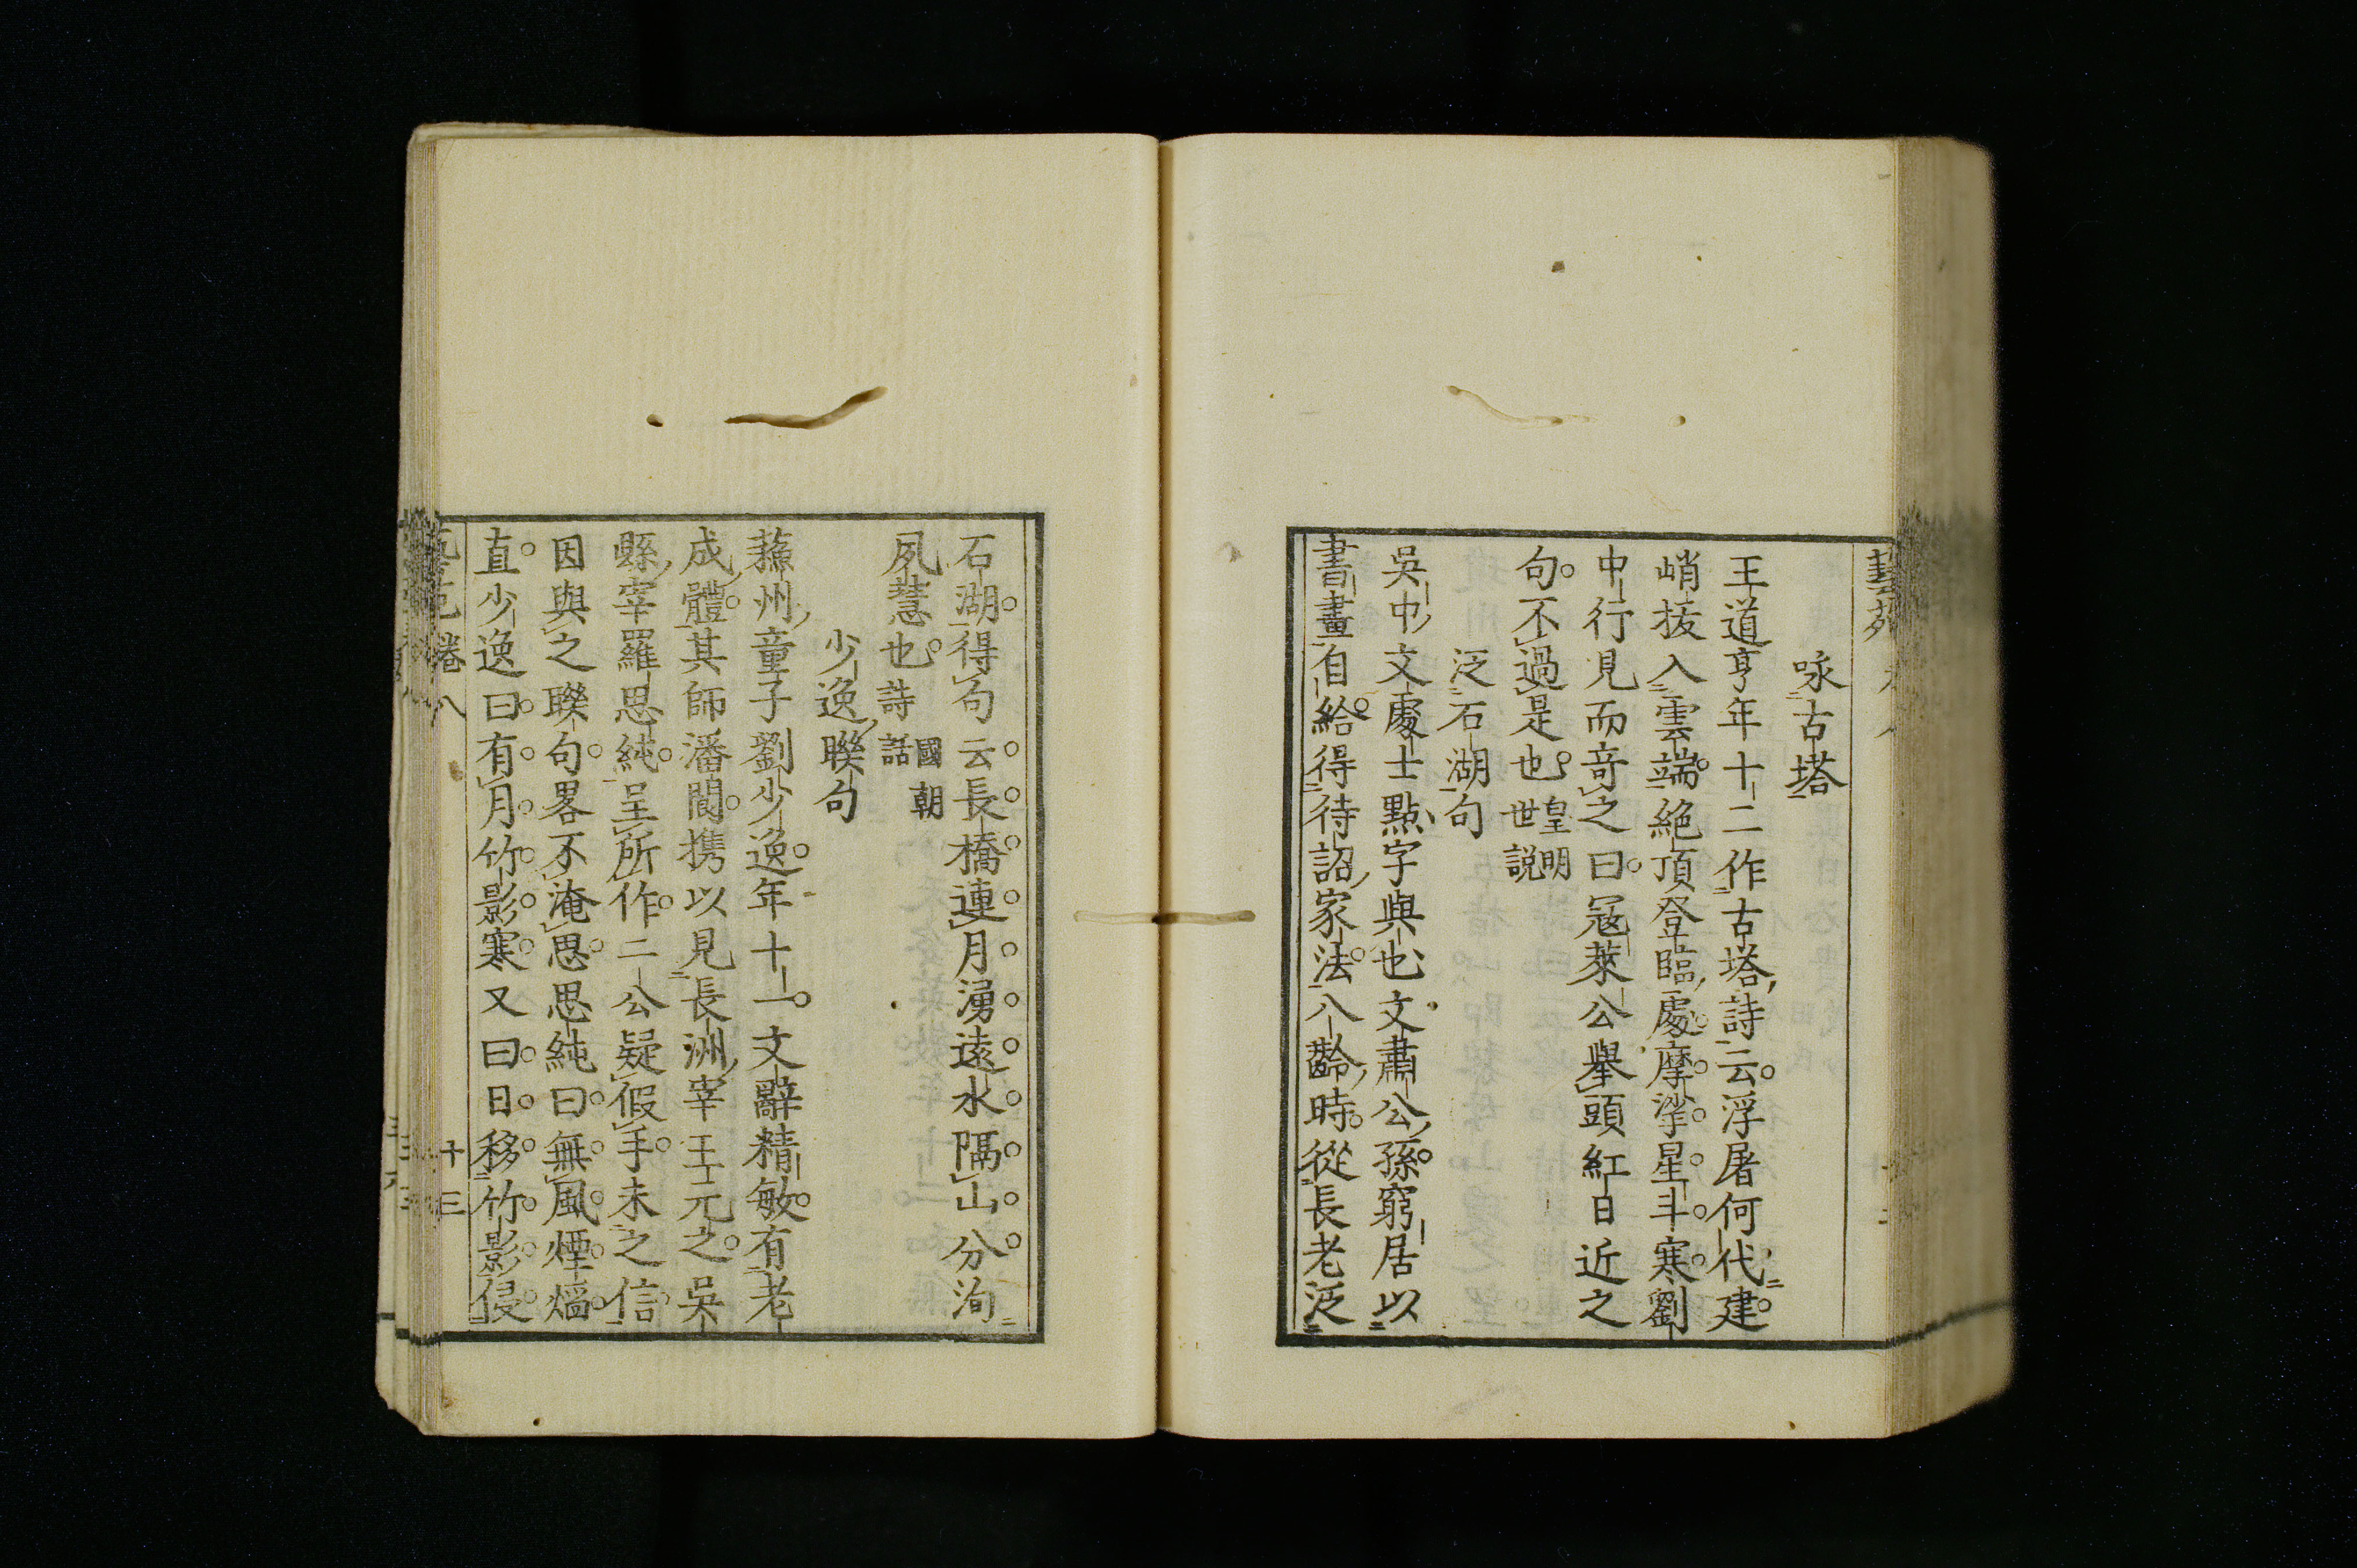 咏古塔
王道亨年十二作古塔詩云浮屠何代建
峭拔入雲端絶頂登臨處摩挲星斗寒劉
中行見而竒之曰冦萊公舉頭紅日近之
句不過是也皇明世説
泛石湖句
吳中文處士點字與也文肅公孫窮居以
書畫自給得待詔家法八齡時從長老泛
石湖得句云長橋連月湧遠水隔山分洵
夙慧也國朝詩話
少逸聯句
蘓州童子劉少逸年十一文辭精敏有老
成體其師潘閬携以見長洲宰王元之吳
縣宰羅思純呈所作二公疑假手未之信
因與之聯句畧不淹思思純曰無風煙熖
直少逸曰有月竹影寒又曰日移竹影侵
卷八
十三